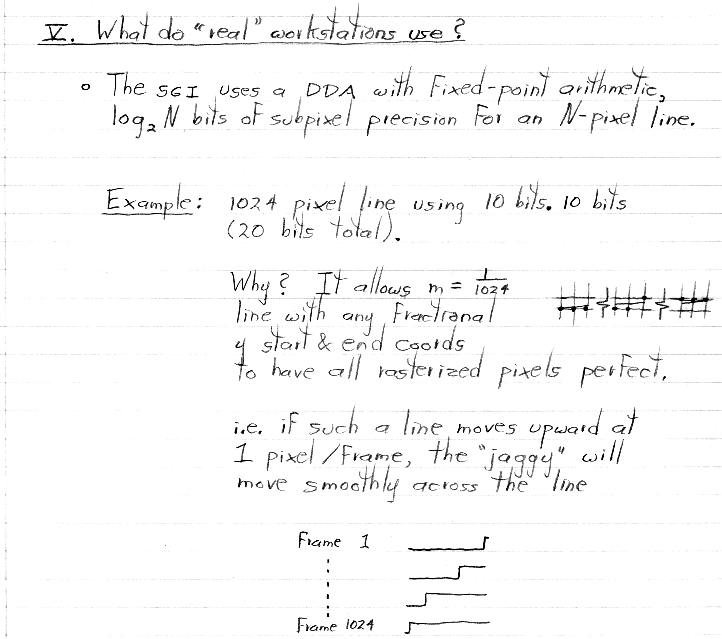 V. What do "real" workstations use?
• The SGI uses a DDA with Fixed-point arithmetic,
log₂ N bits of subpixel precision for an N-pixel line.
Example: 1024 pixel line using 10 bits. 10 bits
(20 bits total).
Why? It allows m = 1/1024
line with any Fractional
y start & end coords
to have all rasterized pixels perfect.
i.e. if such a line moves upward at
1 pixel/Frame, the "jaggy" will
move smoothly across the line
Frame 1
Frame 1024